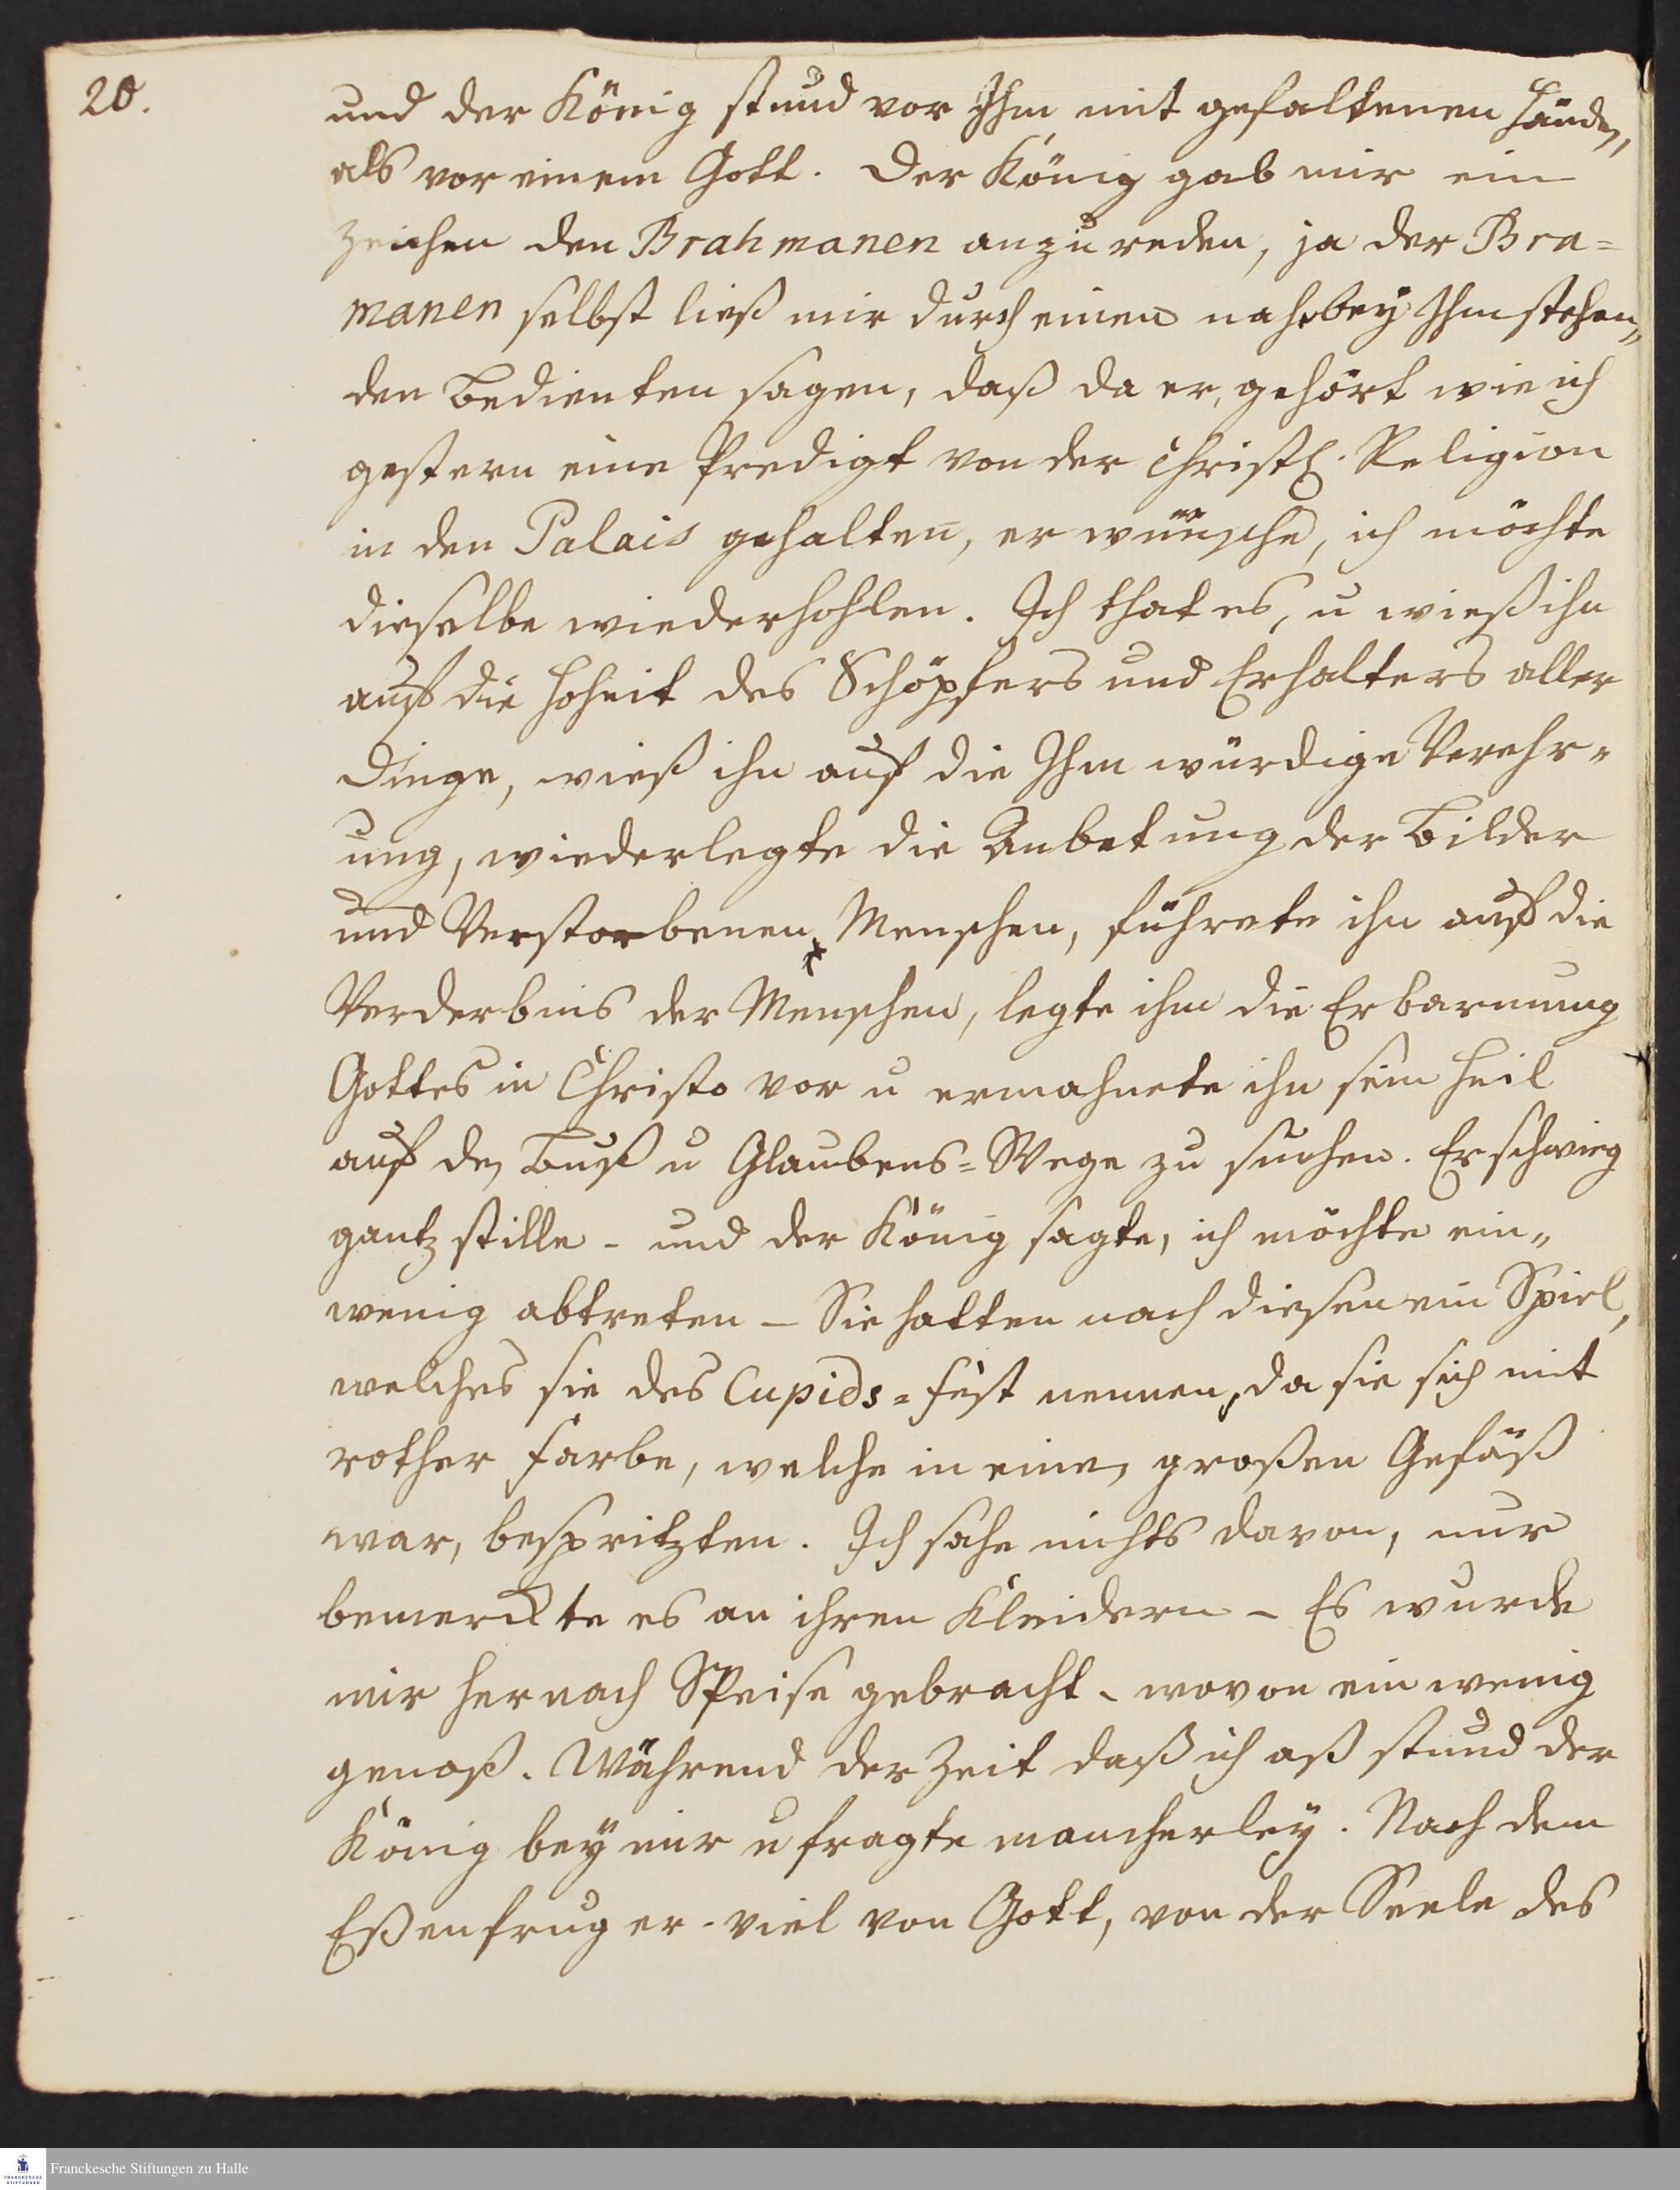 20.
und der König stund vor Ihm mit gefaltenen Händen,
als vor einem Gott. Der König gab mir ein
Zeichen den Brahmanen anzureden, ja der Bra=
manen selbst ließ mir durch einen nahe bey Ihm stehen„
den Bedienten sagen, daß da er, gehört wie ich
gestern eine Predigt von der Christl. Religion
in den Palais gehalten, er wünsche, ich möchte
dieselbe wiederhohlen. Ich that es, u wieß ihn
auf die Hoheit des Schöpfers und Erhalters aller
Dinge, wieß ihn auf die Ihm würdige Verehr„
ung, wiederlegte die Anbetung der Bilder
und Verstorbenen Menschen, führete ihn auf die
Verderbnis der Menschen, legte ihm die Erbarmung
Gottes in Christo vor u ermahnete ihn sein Heil
auf den Buß u Glaubens=Wege zu suchen. Er schwieg
gantz stille - und der König sagte, ich möchte ein„
wenig abtreten – Sie hatten nach diesen ein Spiel,
welches sie des Cupids=Fest nennen, da sie sich mit
rother Farbe, welche in einen großen Gefäß
war, bespritzten. Ich sahe nichts davon, nur
bemerckte es an ihren Kleidern – Es wurde
mir hernach Speise gebracht - wovon ein wenig
genoß. Während der Zeit daß ich aß stund der
König bey mir u fragte mancherley. Nach dem
Eßen frug er - viel von Gott, von der Seele des
FRANCKESCHE STIFTUNGEN
Franckesche Stiftungen zu Halle